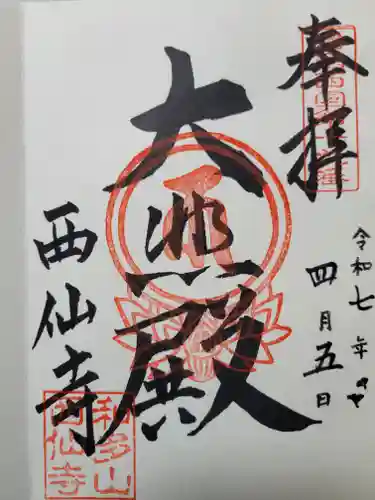 奉拝
大悲殿
西仙寺
令和七年
四月五日
和多山
西仙寺